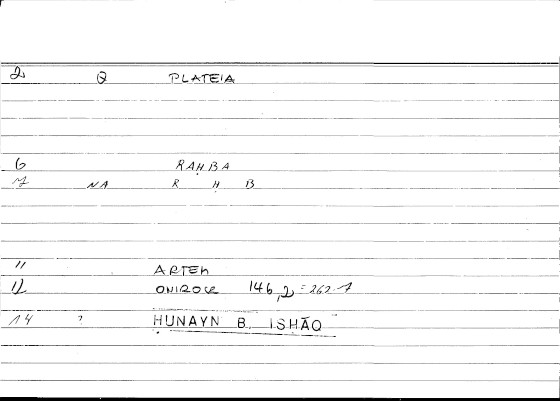 2 Q PLATEIA
6 RAḤBA
7 NA R Ḥ B
11 ARTEM
12 ONIROCR 146,2 = 262.1
14 ? ḤUNAYN B. ISḤĀQ